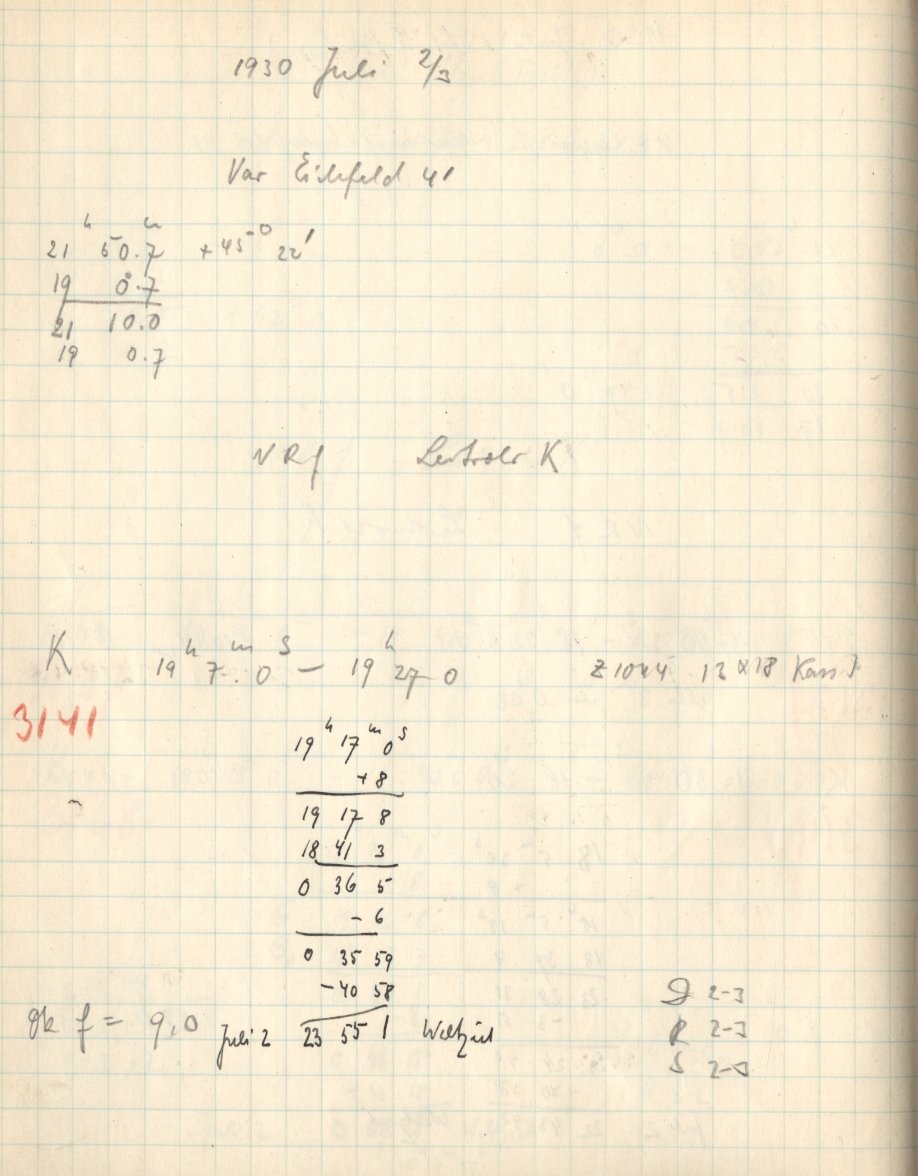 1930 Juli 2/3
Var Eichfeld 41
h m
21 50.7 +45° 22'
19 0.7
21 10.0
19 0.7
N R f Zentrale K
K 19h 7m. 0s — 19h 27 0 13x18
3141
19h 17m 0s
+8
19 17 8
18 41 3
0 36 5
- 6
0 35 59
-40 58
f = 9,0 Juli 2 23 55 1 Weltzeit
D 2-3
R 2-3
S 2-3